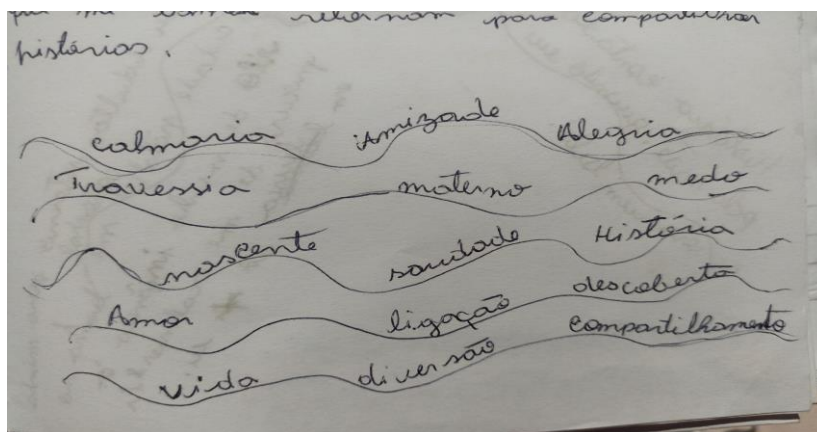 que me        retornam para compartilhar
histórias.
calmaria amizade Alegria
Travessia materno medo
nascente saudade História
Amor ligação descoberta
vida diversão compartilhamento